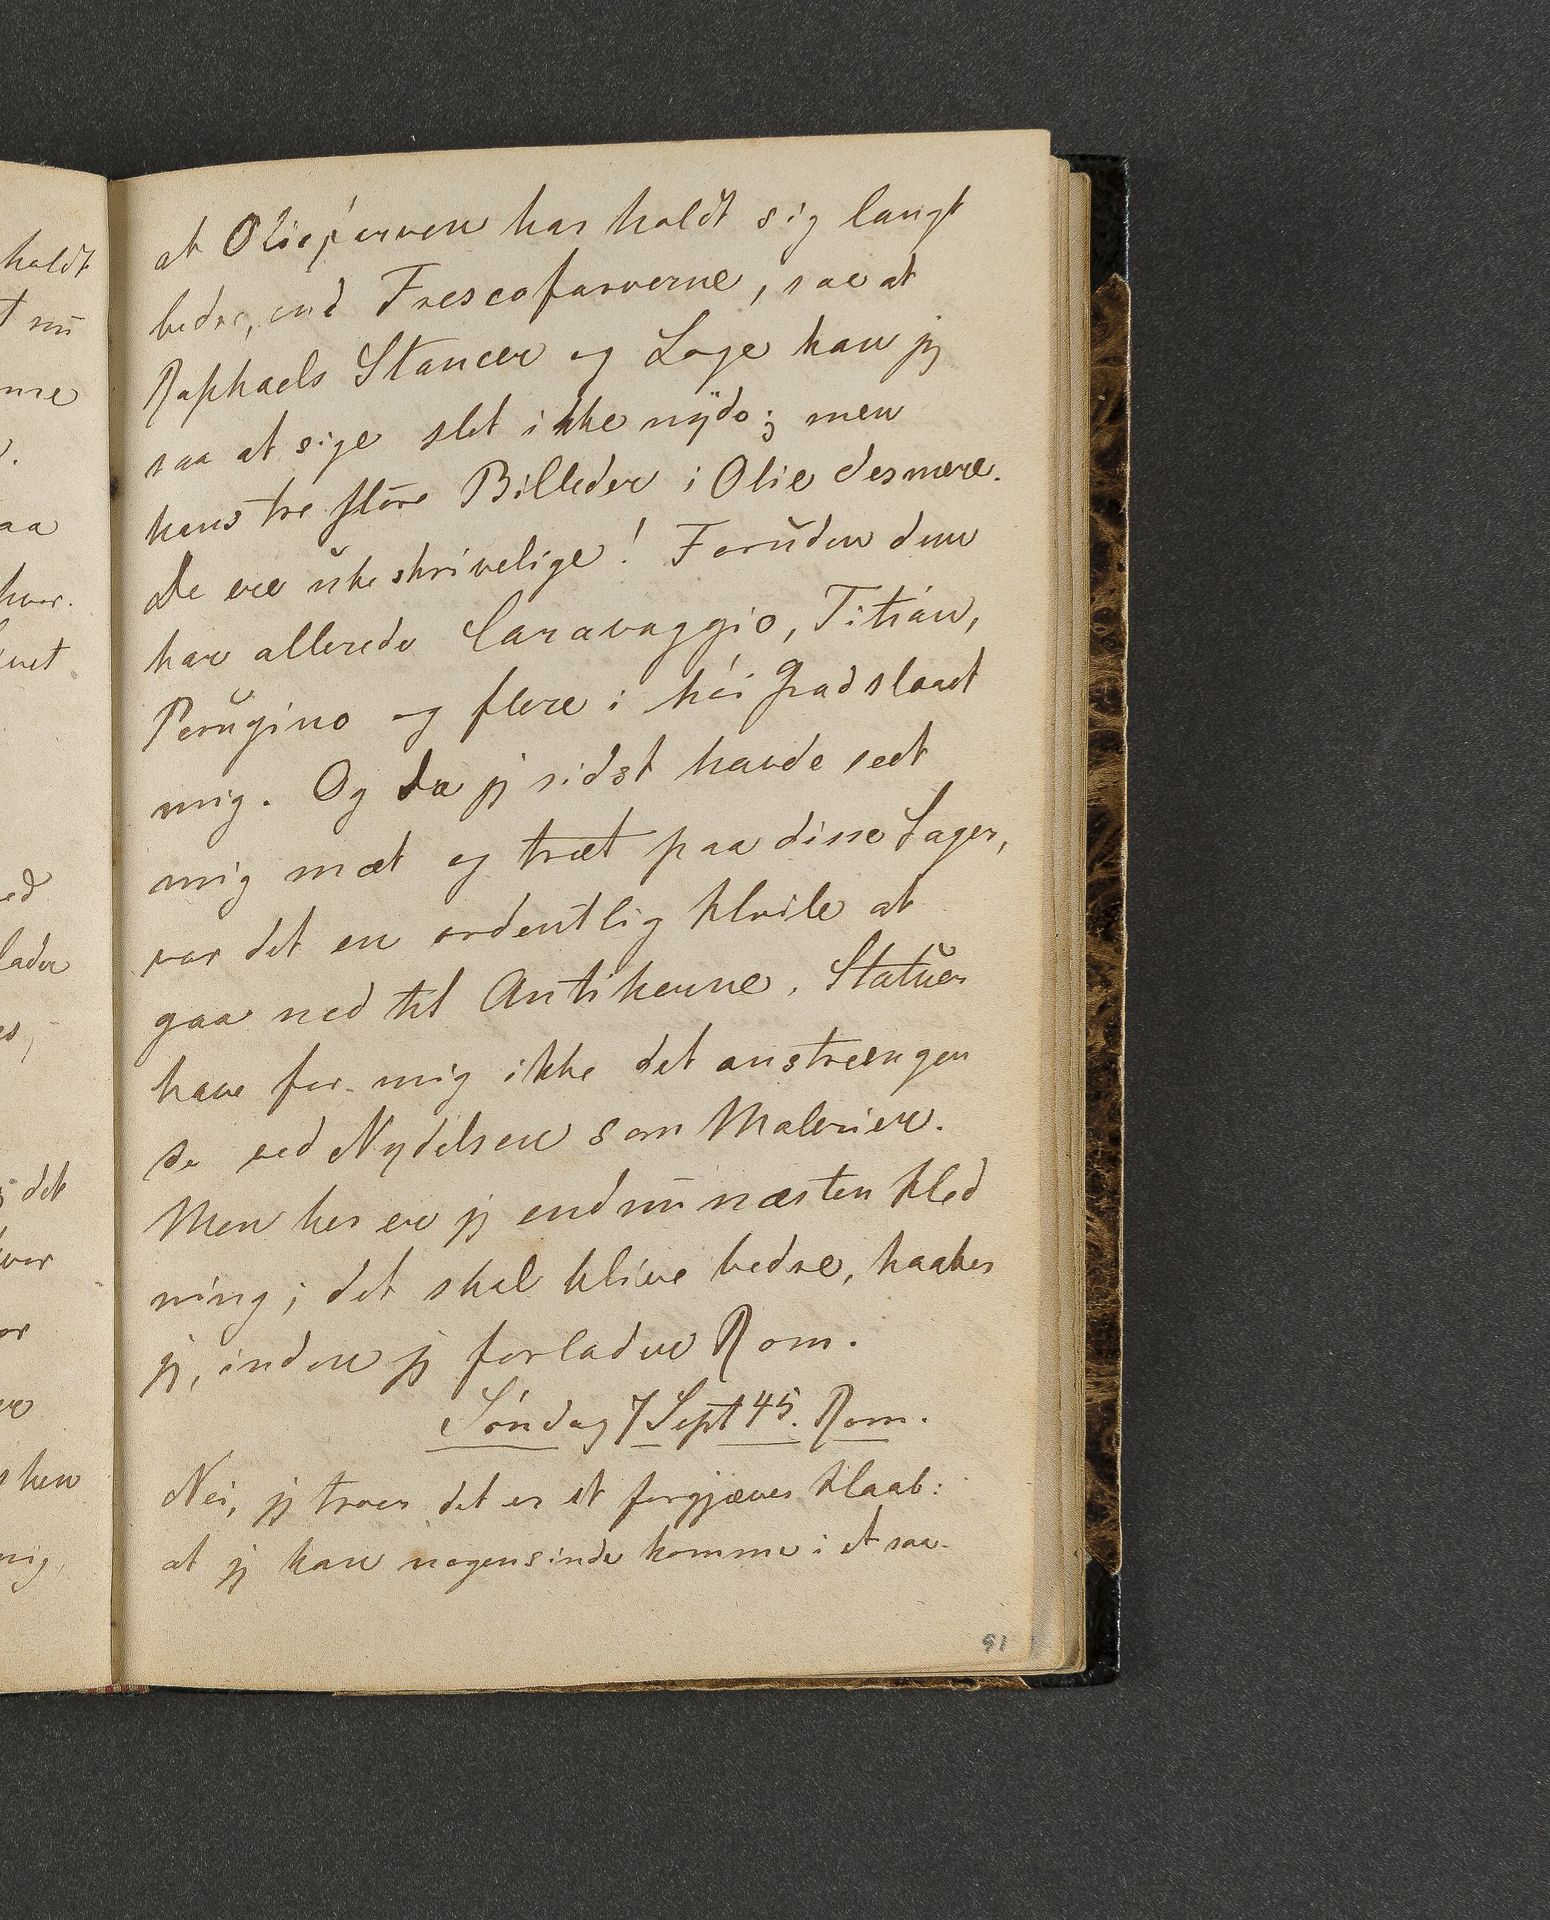 at Oliefarven har holdt sig langt
bedre, end Frescofarverne, saa at
Raphaels Stancer og Loge kan jeg
saa at sige slet ikke nyde; men
hans tre store Billeder i Olie desmere.
De ere ubeskrivelige! Foruden dem
har allerede Caravaggio, Titian,
Perugino og flere i høi Grad slaaet
mig. Og da jeg sidst havde seet
mig mæt og træt paa disse Sager,
var det en ordentlig Hvile at
gaa ned til Antikerne. Statuer
have for mig ikke det anstrængen
de ved Nydelsen som Malerier.
Men her er jeg endnu næsten Hed
ning; det skal blive bedre, haaber
jeg, inden jeg forlader Rom.
Søndag 7 Sept 45. Rom.
Nei, jeg troer det er et forgjæves Haab:
at jeg kan nogensinde komme i et saa-
91
holdt
t nu
aa
hver.
ivet
lader
det
hen
mig